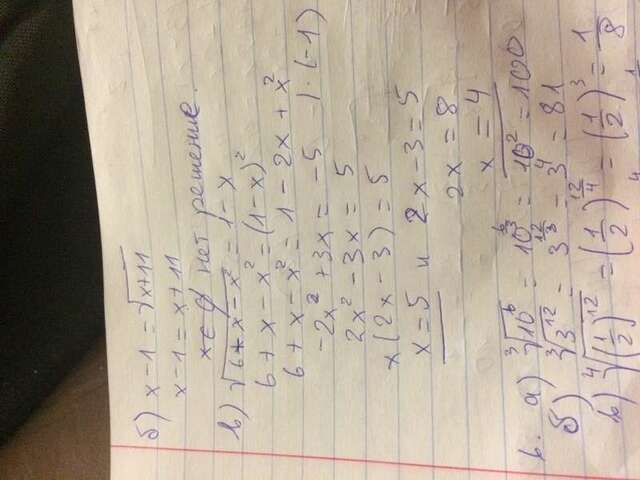 б) x-1 = √(x+11)
x-1 = x+11
x∈∅ нет решение.
в) √(6+x-x²) = 1-x
6+x-x² = (1-x)²
6+x-x² = 1-2x+x²
-2x²+3x = -5 |·(-1)
2x²-3x = 5
x(2x-3) = 5
x=5 и 2x-3=5
2x = 8
x = 4
6. а) ∛(10⁶) = 10^(6/3) = 10² = 100
б) ∛(3¹²) = 3^(12/3) = 3⁴ = 81
в) ∜((1/2)¹²) = (1/2)^(12/4) = (1/2)³ = 1/8